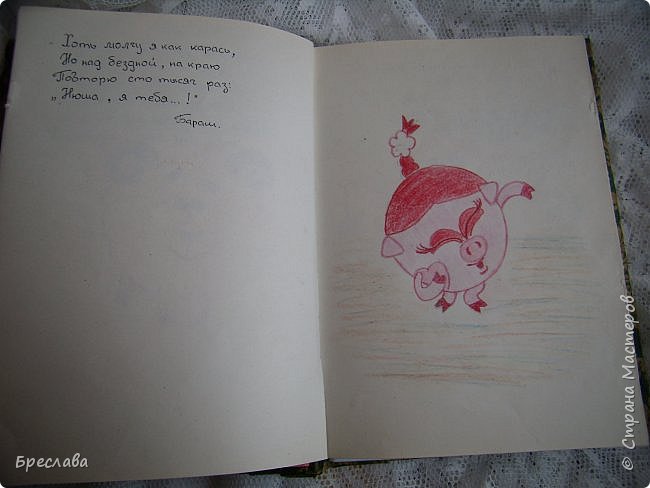 Хоть молчу я как карась,
Но над бездной, на краю
Повторю сто тысяч раз:
„Нюша, я тебя...!"
Бараш.
Бреслава
© Страна Мастеров